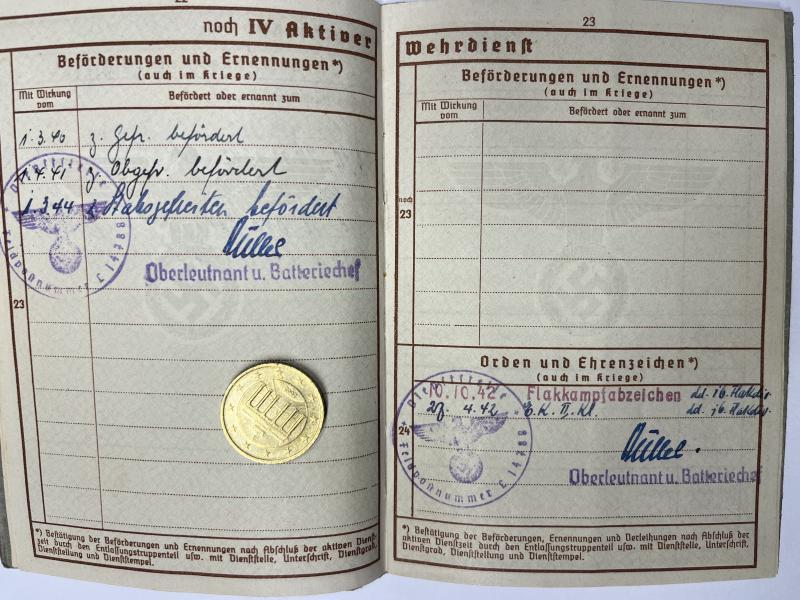 22
noch IV Aktiver
Beförderungen und Ernennungen*)
(auch im Kriege)
Mit Wirkung vom
Befördert oder ernannt zum
1.3.40 z. Gefr. befördert
1.4.41 z. Obgefr. befördert
1.3.44 z. Stabsgefreiten befördert
Oberleutnant u. Batteriechef
Dienststelle
Feldpostnummer L 14788
23
*) Bestätigung der Beförderungen und Ernennungen nach Abschluß der aktiven Dienst-
zeit durch den Entlassungstruppenteil usw. mit Dienststelle, Unterschrift, Dienstgrad,
Dienststellung und Dienststempel.
23
Wehrdienst
Beförderungen und Ernennungen*)
(auch im Kriege)
Mit Wirkung vom
Befördert oder ernannt zum
noch
23
Orden und Ehrenzeichen*)
(auch im Kriege)
10.10.42 Flakkampfabzeichen
4.42 E.K. II. Kl.
24
Oberleutnant u. Batteriechef
Dienststelle
Feldpostnummer L 14788
*) Bestätigung der Beförderungen, Ernennungen und Verleihungen nach Abschluß der
aktiven Dienstzeit durch den Entlassungstruppenteil usw. mit Dienststelle, Unterschrift,
Dienstgrad, Dienststellung und Dienststempel.